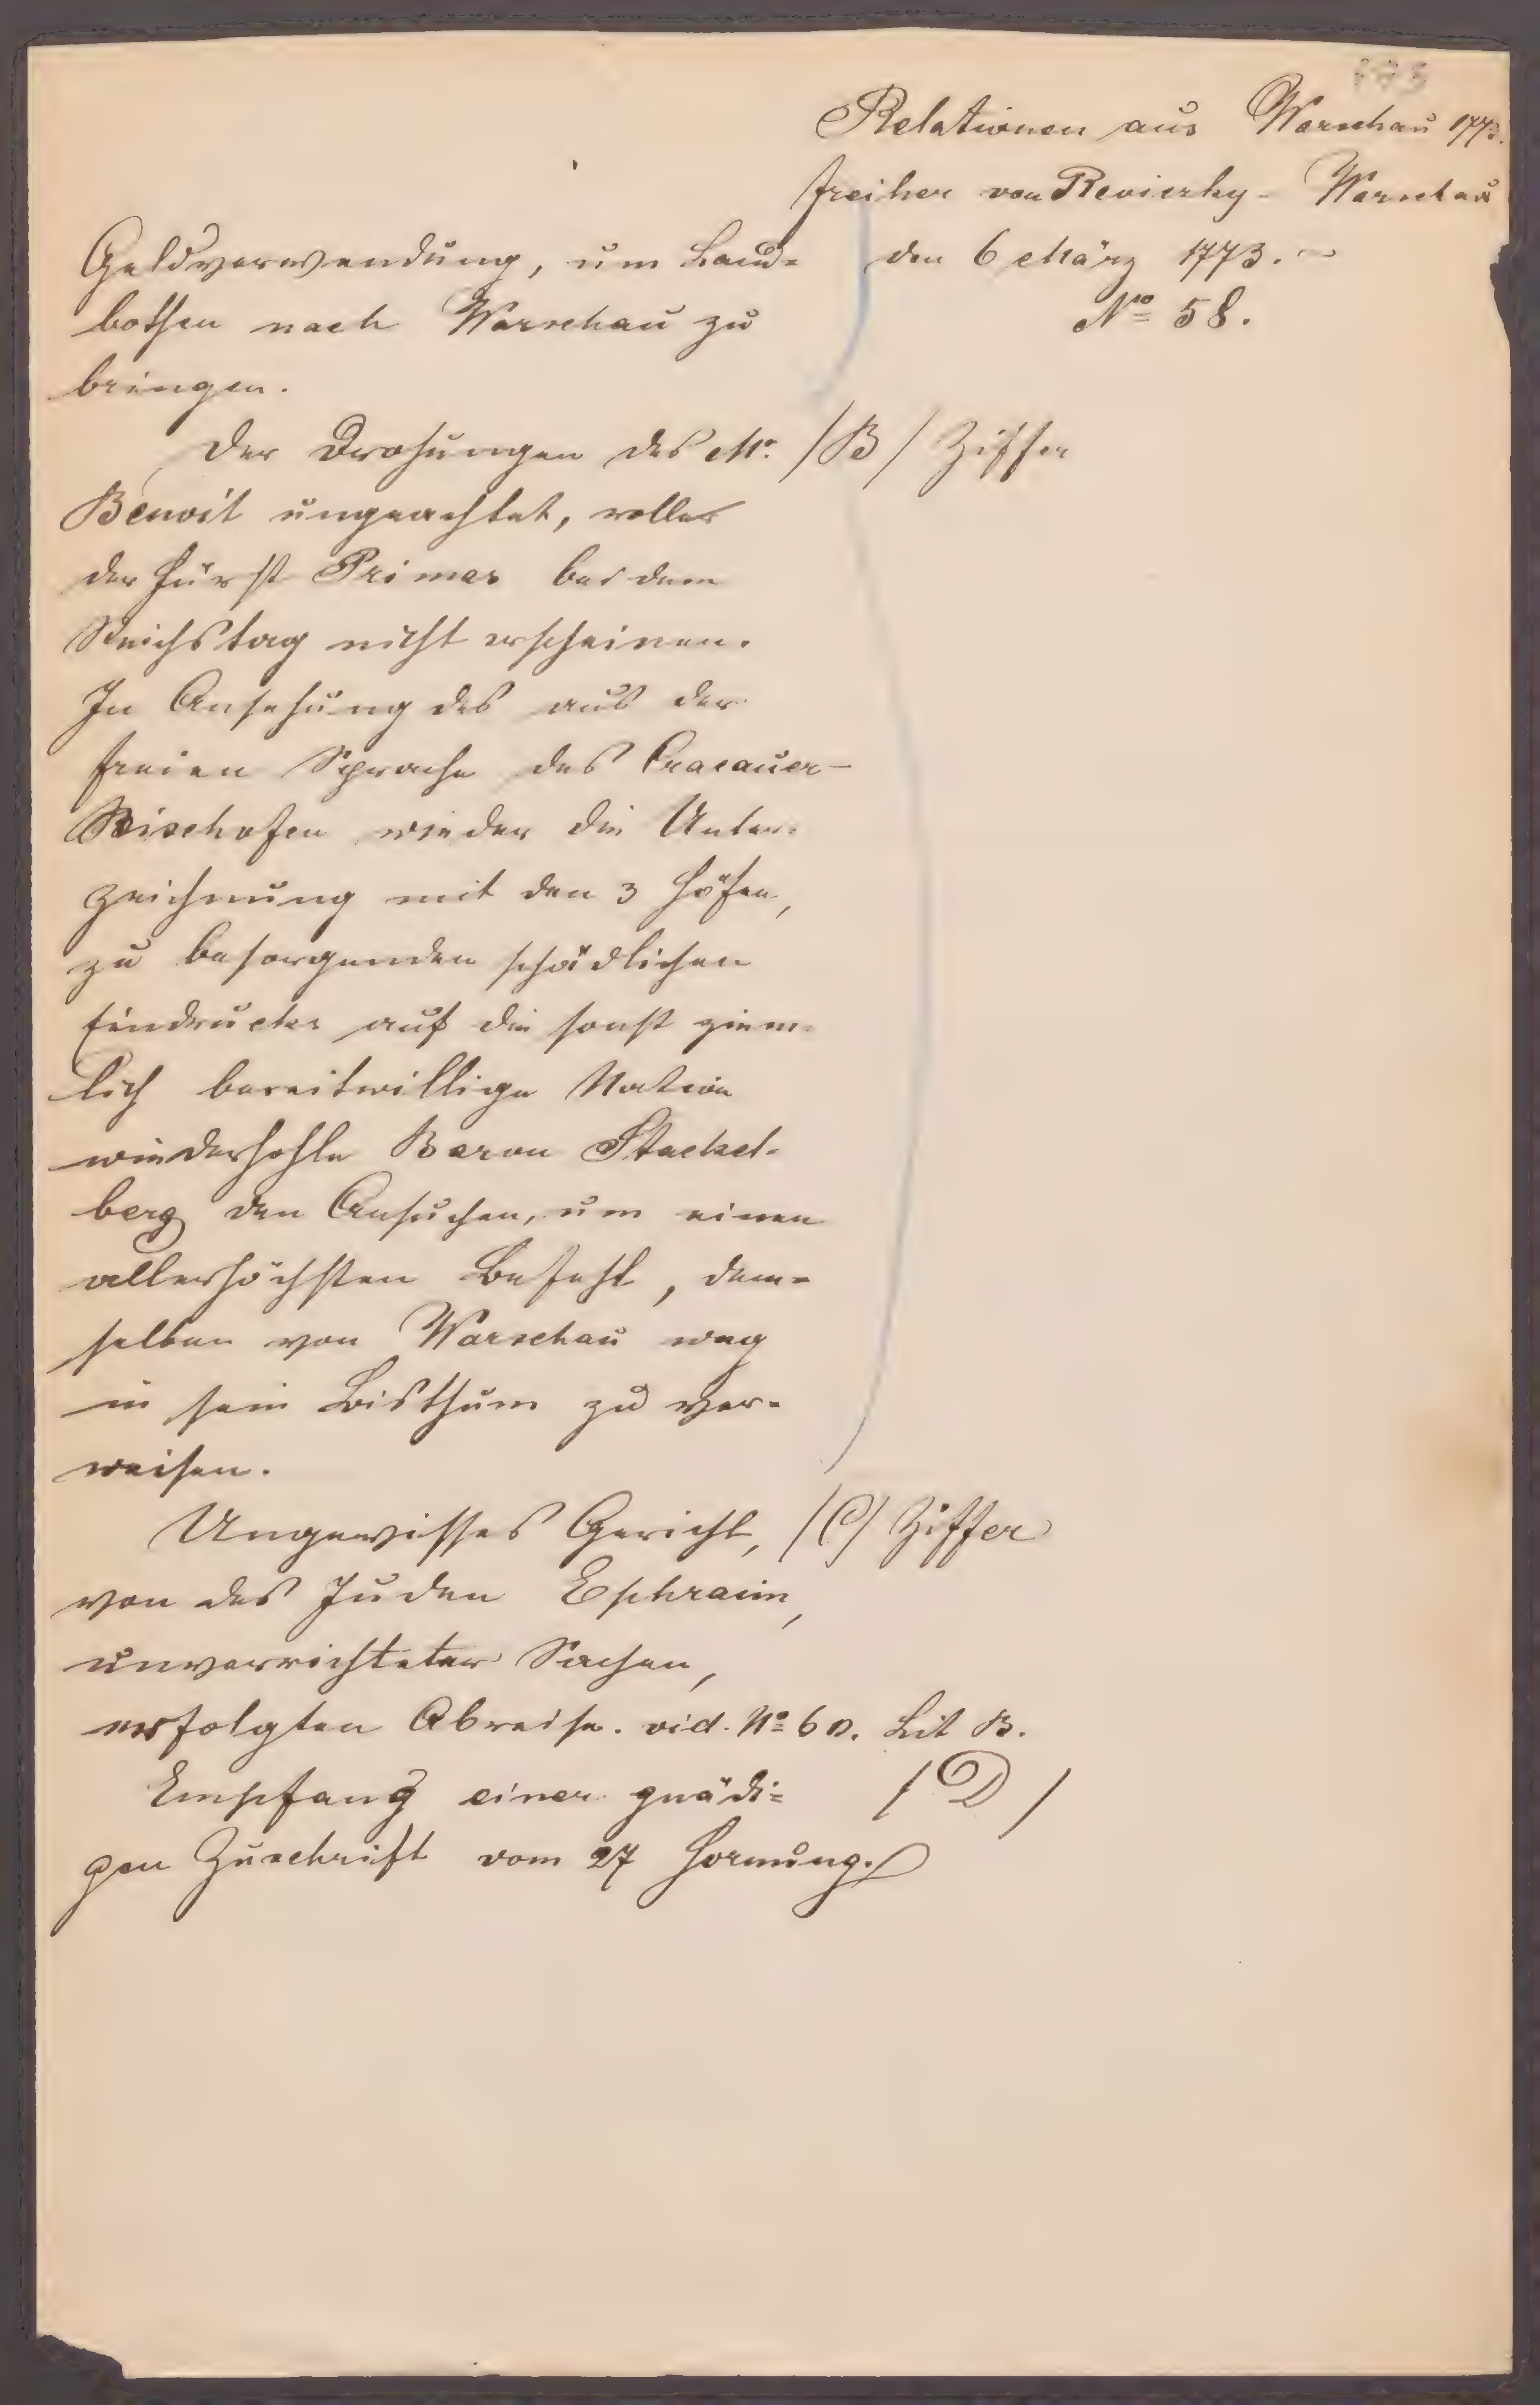 Relationen aus Warschau 1773.
Freiher von Reviczky - Warschau
den 6 März 1773. -
No 58.
Geldverwendung, um Land-
bothen nach Warschau zu
bringen.
Der Drohungen des Mr. /B/ Ziffer
Benoit ungeachtet, wolle
der Fürst Primas bei dem
Reichstag nicht erscheinen.
In Ansehung des aus der
freien Sprache des Cracauer-
Bischofen wieder die Unter-
zeichnung mit den 3 Höfen,
zu besorgenden schädlichen
Eindrucks auf die sonst ziem-
lich bereitwillige Nation
wiederhohle Baron Stackel-
berg den Ansuchen, um einen
allerhöchsten Befehl, dem-
selben von Warschau weg
in sein Bisthum zu ver-
weisen.
Ungewisses Gericht, /C/ Ziffer
von des Juden Ephraim,
unverrichteter Sachen,
erfolgten Abreise. vid. No 60. Lit B.
Empfang einer gnädi- /D/
gen Zuschrift vom 27 Hornung.